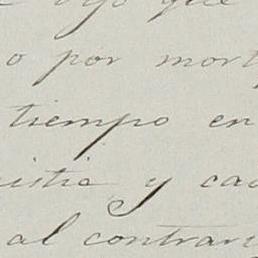 que
o por mort
tiempo en
istia y cad
al contrari